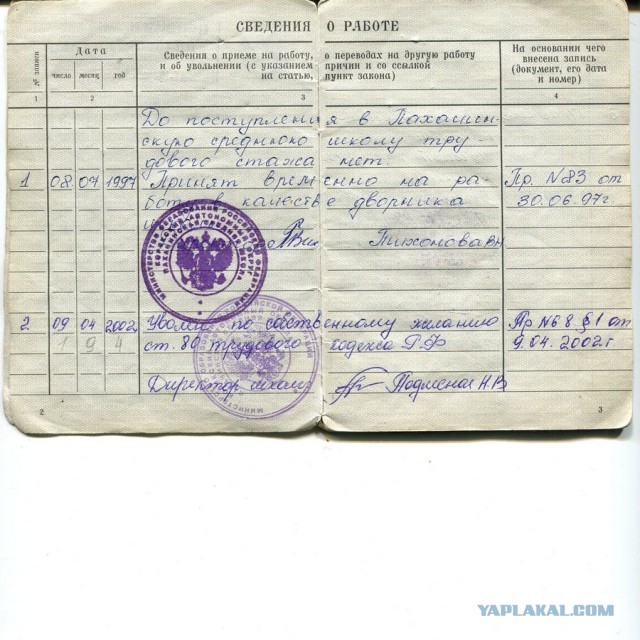 СВЕДЕНИЯ О РАБОТЕ
№ записи
Дата
число месяц год
Сведения о приеме на работу, о переводах на другую работу
и об увольнении (с указанием причин и со ссылкой
на статью, пункт закона)
На основании чего
внесена запись
(документ, его дата
и номер)
1 2 3 4
До поступления в
скую среднюю школу тру-
дового стажа нет.
1 08 07 1997 Принят временно на ра- Пр. N83 от
боту в качестве дворника 30.06.97г.
2 09 04 2002 Уволен по собственному желанию Пр N68 §1 от
1 9 4 ст. 80 трудового кодекса РФ 9.04.2002г
Директор школы
2
3
YAPLAKAL.COM